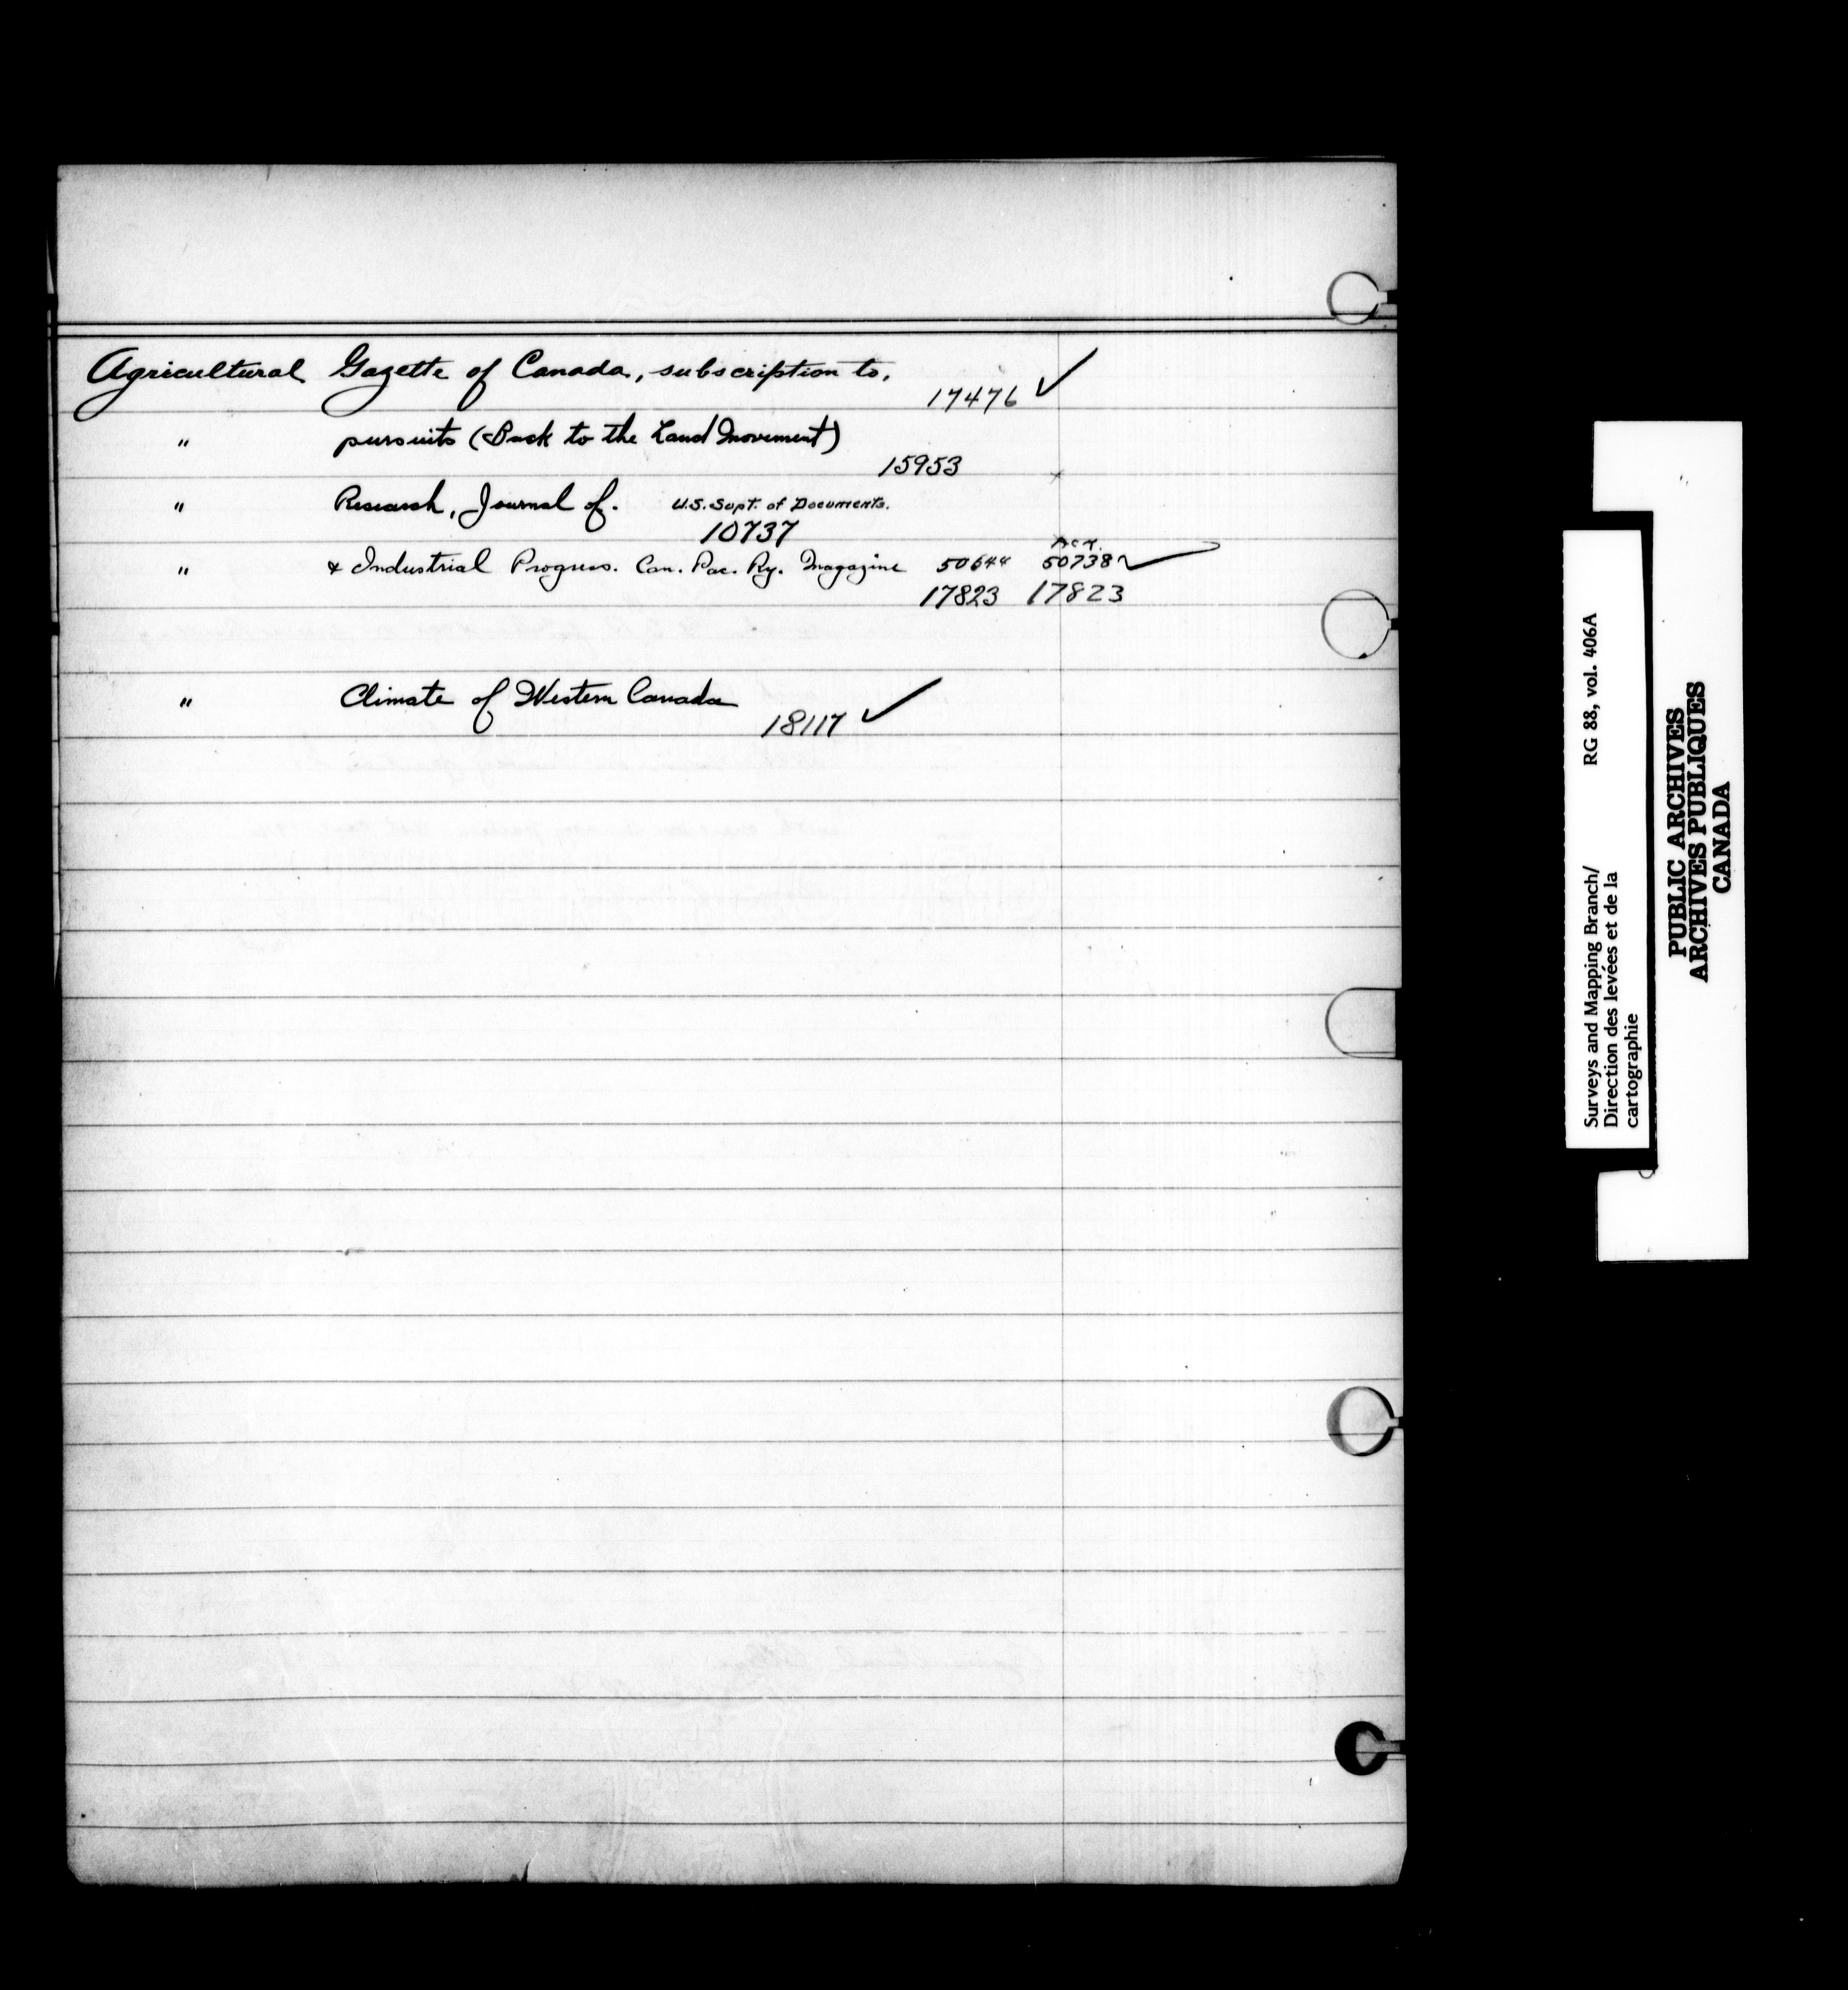 Agricultural Gazette of Canada, subscription to,
17476 ✓
" pursuits (Back to the Land Movement)
15953
" Research, Journal of. U.S. Supt. of Documents.
10737
" & Industrial Progress. Can. Pac. Ry. Magazine 50644 50738 ✓
17823 17823
" Climate of Western Canada
18117 ✓
Surveys and Mapping Branch/ RG 88, vol. 406A
Direction des levées et de la
cartographie
PUBLIC ARCHIVES
ARCHIVES PUBLIQUES
CANADA